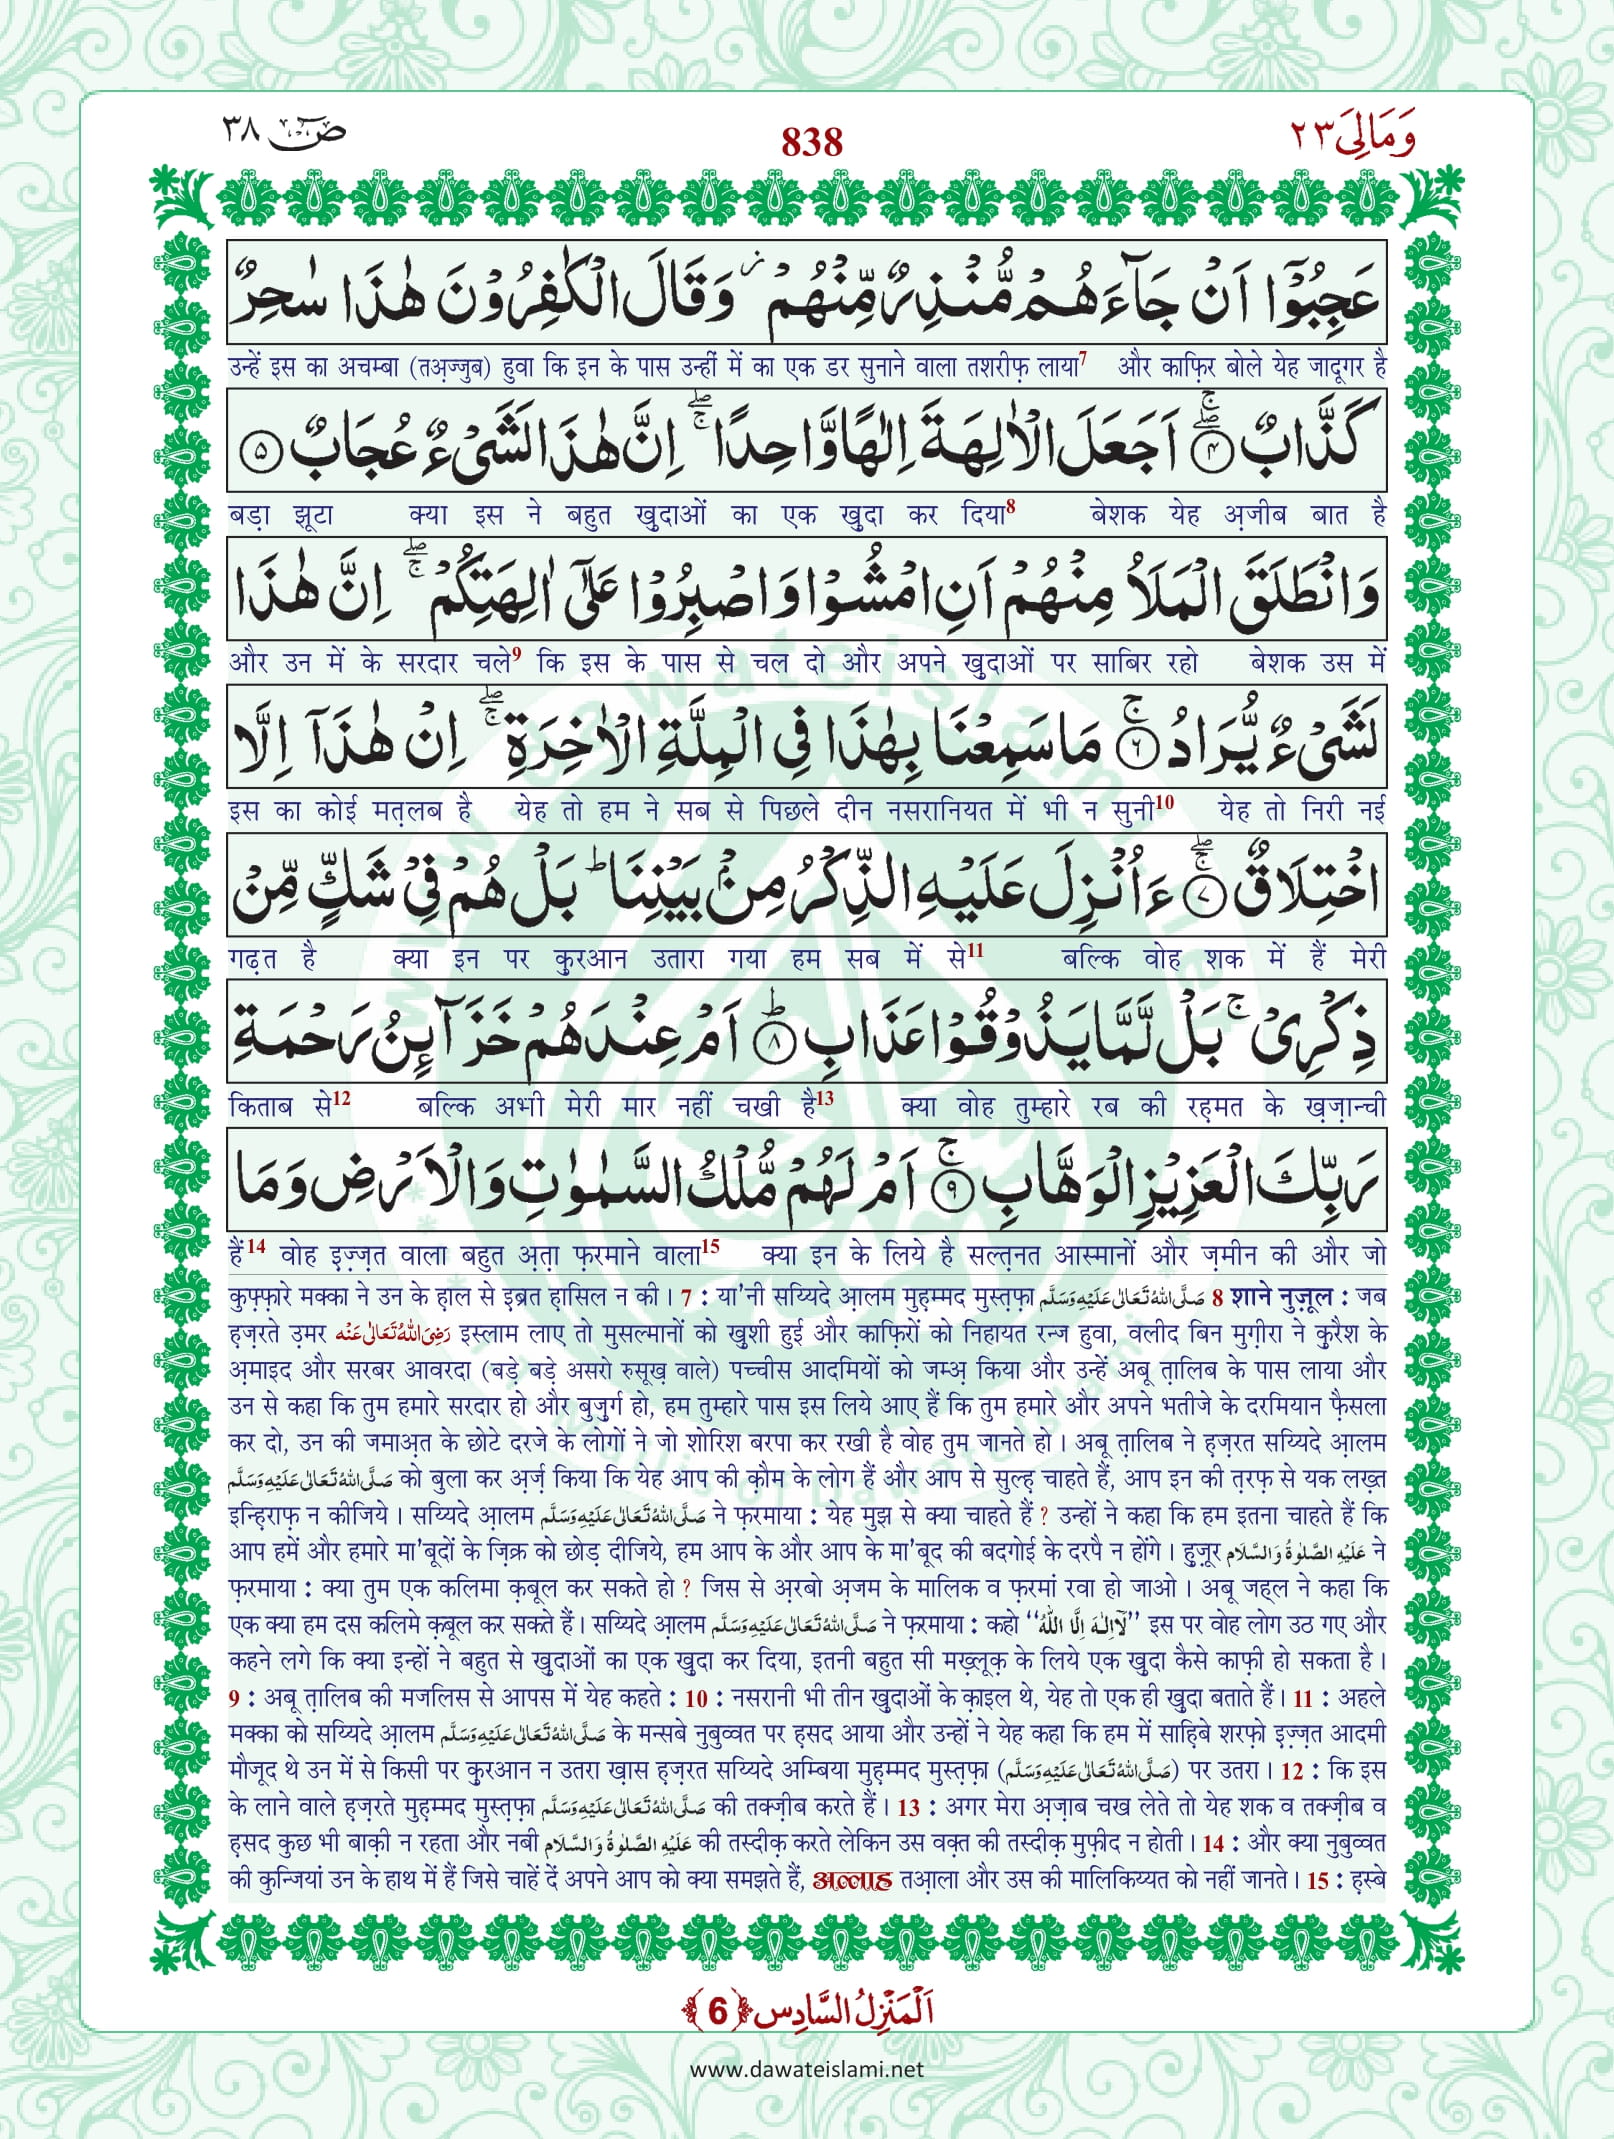 وَمَالِیَ ٢٣ 838 صٓ ٣٨
عَجِبُوْۤا اَنْ جَآءَهُمْ مُّنْذِرٌ مِّنْهُمْ٘ وَقَالَ الْكٰفِرُوْنَ هٰذَا سٰحِرٌ
उन्हें इस का अचम्बा (तअ़ज्जुब) हुवा कि इन के पास उन्हीं में का एक डर सुनाने वाला तशरीफ़ लाया7 और काफ़िर बोले येह जादूगर है
كَذَّابٌۖۚ ﴿۴﴾ اَجَعَلَ الْاٰلِهَةَ اِلٰهًا وَّاحِدًاۖۚ اِنَّ هٰذَا لَشَیْءٌ عُجَابٌ ﴿۵﴾
बड़ा झूटा क्या इस ने बहुत खुदाओं का एक खुदा कर दिया8 बेशक येह अ़जीब बात है
وَانْطَلَقَ الْمَلَاُ مِنْهُمْ اَنِ امْشُوْا وَاصْبِرُوْا عَلٰۤی اٰلِهَتِكُمْۖۚ اِنَّ هٰذَا
और उन में के सरदार चले9 कि इस के पास से चल दो और अपने खुदाओं पर साबिर रहो बेशक उस में
لَشَیْءٌ یُّرَادُۚ ﴿۶﴾ مَا سَمِعْنَا بِهٰذَا فِی الْمِلَّةِ الْاٰخِرَةِۖۚ اِنْ هٰذَاۤ اِلَّا
इस का कोई मत़लब है येह तो हम ने सब से पिछले दीन नसरानियत में भी न सुनी10 येह तो निरी नई
اخْتِلَاقٌۖۚ ﴿۷﴾ ءَاُنْزِلَ عَلَیْهِ الذِّكْرُ مِنْۢ بَیْنِنَاؕ بَلْ هُمْ فِیْ شَكٍّ مِّنْ
गढ़त है क्या इन पर क़ुरआन उतारा गया हम सब में से11 बल्कि वोह शक में हैं मेरी
ذِكْرِیْۚ بَلْ لَّمَّا یَذُوْقُوْا عَذَابِؕ ﴿۸﴾ اَمْ عِنْدَهُمْ خَزَآىِٕنُ رَحْمَةِ
किताब से12 बल्कि अभी मेरी मार नहीं चखी है13 क्या वोह तुम्हारे रब की रह़मत के ख़ज़ान्ची
رَبِّكَ الْعَزِیْزِ الْوَهَّابِۚ ﴿۹﴾ اَمْ لَهُمْ مُّلْكُ السَّمٰوٰتِ وَالْاَرْضِ وَمَا
हैं14 वोह इ़ज़्ज़त वाला बहुत अ़त़ा फ़रमाने वाला15 क्या इन के लिये है सल्त़नत आस्मानों और ज़मीन की और जो
कुफ़्फ़ारे मक्का ने उन के ह़ाल से इ़ब्रत ह़ासिल न की। 7 : या'नी सय्यिदे आ़लम मुह़म्मद मुस्त़फ़ा صَلَّى اللهُ تَعَالٰى عَلَيْهِ وَسَلَّم 8 शाने नुज़ूल : जब
ह़ज़रते उ़मर رَضِیَ اللهُ تَعَالٰى عَنْه इस्लाम लाए तो मुसल्मानों को खुशी हुई और काफ़िरों को निहायत रन्ज हुवा, वलीद बिन मुग़ीरा ने क़ुरैश के
अ़माइद और सरबर आवरदा (बड़े बड़े असरो रुसूख़ वाले) पच्चीस आदमियों को जम्अ़ किया और उन्हें अबू त़ालिब के पास लाया और
उन से कहा कि तुम हमारे सरदार हो और बुज़ुर्ग हो, हम तुम्हारे पास इस लिये आए हैं कि तुम हमारे और अपने भतीजे के दरमियान फ़ैसला
कर दो, उन की जमाअ़त के छोटे दरजे के लोगों ने जो शोरिश बरपा कर रखी है वोह तुम जानते हो। अबू त़ालिब ने ह़ज़रत सय्यिदे आ़लम
صَلَّى اللهُ تَعَالٰى عَلَيْهِ وَسَلَّم को बुला कर अ़र्ज़ किया कि येह आप की क़ौम के लोग हैं और आप से सुल्ह़ चाहते हैं, आप इन की त़रफ़ से यक लख़्त
इन्ह़िराफ़ न कीजिये। सय्यिदे आ़लम صَلَّى اللهُ تَعَالٰى عَلَيْهِ وَسَلَّم ने फ़रमाया : येह मुझ से क्या चाहते हैं ? उन्हों ने कहा कि हम इतना चाहते हैं कि
आप हमें और हमारे मा'बूदों के ज़िक्र को छोड़ दीजिये, हम आप के और आप के मा'बूद की बदगोई के दरपै न होंगे। हुज़ूर عَلَيْهِ الصَّلٰوةُ وَالسَّلَام ने
फ़रमाया : क्या तुम एक कलिमा क़बूल कर सकते हो ? जिस से अ़रबो अ़जम के मालिक व फ़रमां रवा हो जाओ। अबू जह्ल ने कहा कि
एक क्या हम दस कलिमे क़बूल कर सकते हैं। सय्यिदे आ़लम صَلَّى اللهُ تَعَالٰى عَلَيْهِ وَسَلَّم ने फ़रमाया : कहो ‘‘لَاۤ اِلٰهَ اِلَّا اللهُ’’ इस पर वोह लोग उठ गए और
कहने लगे कि क्या इन्हों ने बहुत से खुदाओं का एक खुदा कर दिया, इतनी बहुत सी मख़्लूक़ के लिये एक खुदा कैसे काफ़ी हो सकता है।
9 : अबू त़ालिब की मजलिस से आपस में येह कहते : 10 : नसरानी भी तीन खुदाओं के क़ाइल थे, येह तो एक ही खुदा बताते हैं। 11 : अहले
मक्का को सय्यिदे आ़लम صَلَّى اللهُ تَعَالٰى عَلَيْهِ وَسَلَّم के मन्सबे नुबुव्वत पर ह़सद आया और उन्हों ने येह कहा कि हम में साह़िबे शरफ़ो इ़ज़्ज़त आदमी
मौजूद थे उन में से किसी पर क़ुरआन न उतरा ख़ास ह़ज़रत सय्यिदे अम्बिया मुह़म्मद मुस्त़फ़ा (صَلَّى اللهُ تَعَالٰى عَلَيْهِ وَسَلَّم) पर उतरा। 12 : कि इस
के लाने वाले ह़ज़रते मुह़म्मद मुस्त़फ़ा صَلَّى اللهُ تَعَالٰى عَلَيْهِ وَسَلَّم की तक्ज़ीब करते हैं। 13 : अगर मेरा अ़ज़ाब चख लेते तो येह शक व तक्ज़ीब व
ह़सद कुछ भी बाक़ी न रहता और नबी عَلَيْهِ الصَّلٰوةُ وَالسَّلَام की तस्दीक़ करते लेकिन उस वक़्त की तस्दीक़ मुफ़ीद न होती। 14 : और क्या नुबुव्वत
की कुन्जियां उन के हाथ में हैं जिसे चाहें दें अपने आप को क्या समझते हैं, अल्लाह तआ़ला और उस की मालिकिय्यत को नहीं जानते। 15 : ह़स्बे
اَلْمَنْزِلُ السَّادِس ﴿6﴾
www.dawateislami.net